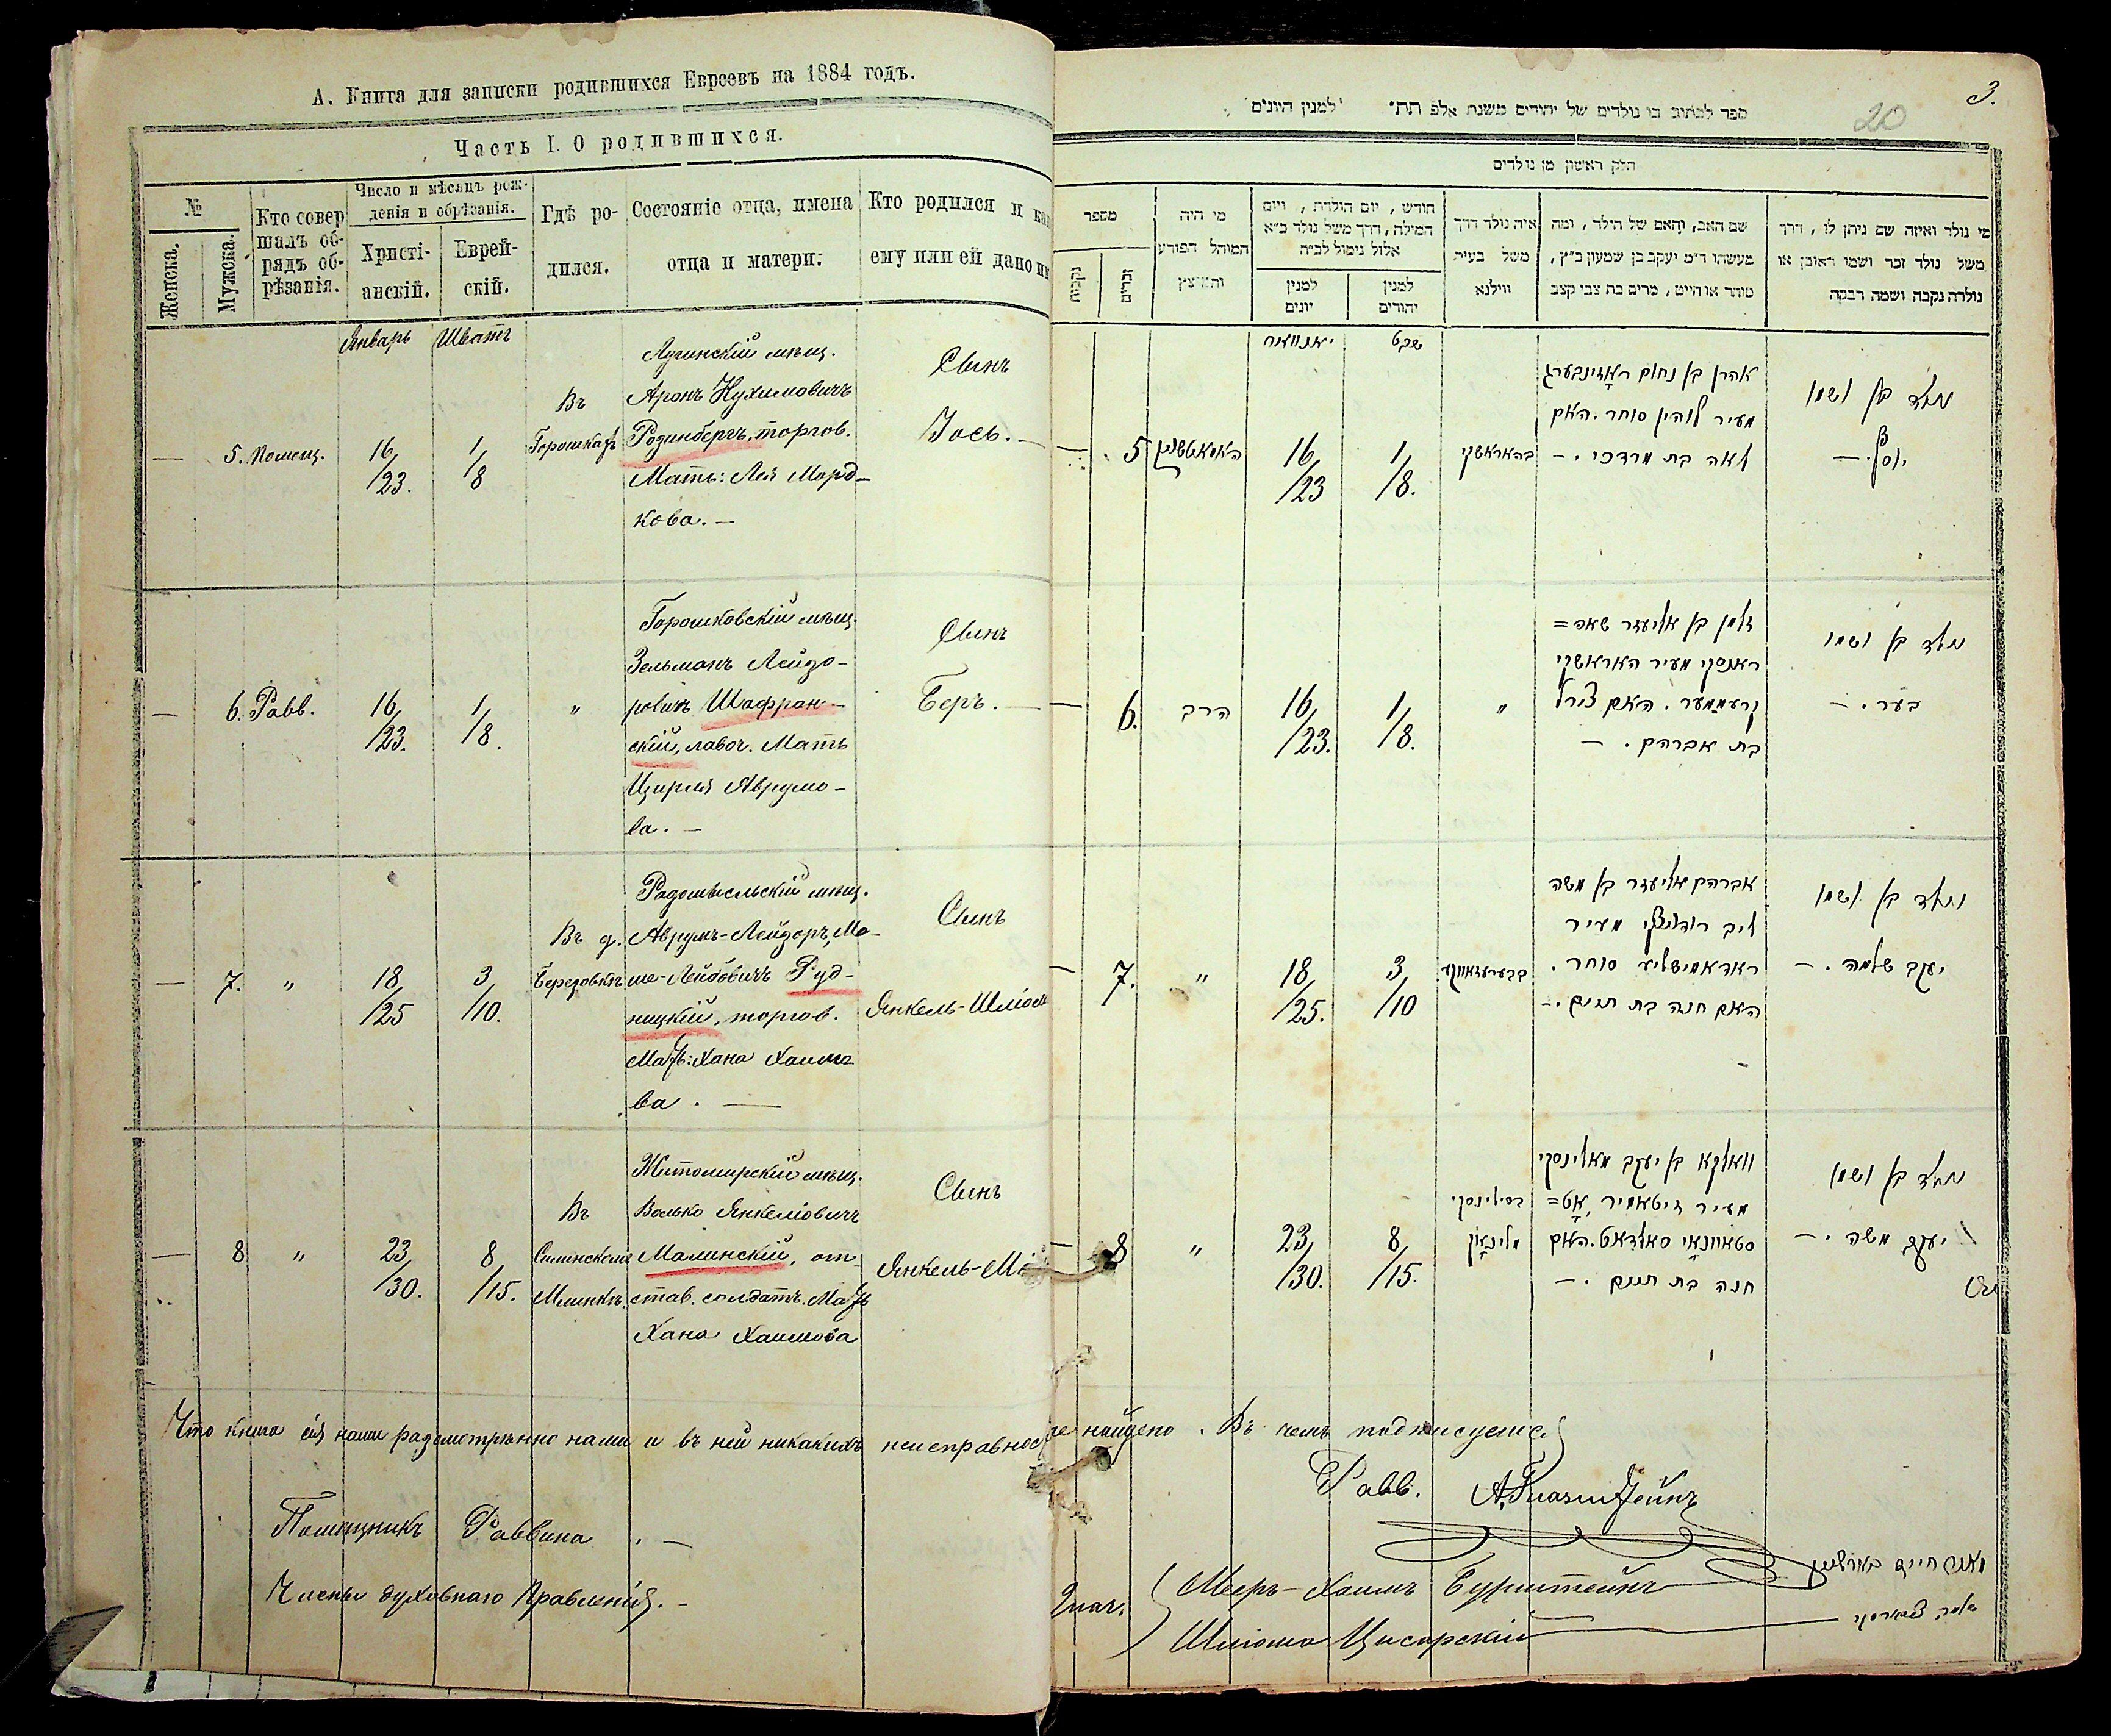 А. Книга для записки родившихся Евреевъ на 1884 годъ.
Часть I. О родившихся.
№
Женска.
Мужска.
Кто совер
шалъ об-
рядъ об-
рѣзанія.
Число и мѣсяцъ рож-
денія и обрѣзанія.
Христі-
анскій.
Еврей-
скій.
Гдѣ ро-
дился.
Состояніе отца, имена
отца и матери:
Кто родился и ка
ему или ей дано и
Январь Шватъ
— 5. Помощ.
16/23.
1/8
Въ
Горошкахъ
Лугинскій мѣщ.
Аронъ Нухимовичъ
Розинбергъ, торгов.
Мать: Лея Морд-
кова. —
Сынъ
Іось. —
— 6. Равв.
16/23.
1/8.
"
Горошковскій мѣщ.
Зельманъ Лейзо-
ровичъ Шафран-
скій, лавоч. Мать
Цирля Аврумо-
ва. —
Сынъ
Беръ. —
— 7. "
18/25
3/10.
Въ д.
Березовкѣ
Радомысльскій мѣщ.
Аврумъ-Лейзоръ Мо-
ше-Лейбовичъ Руд-
ницкій, торгов.
Мать: Хана Хаимо
ва. —
Сынъ
Янкель-Шліом
— 8 "
23/30.
8/15.
Въ
Млинкѣ.
Житомирскій мѣщ.
Волько Янкеліовичъ
Малинскій, от-
став. солдатъ. Мать
Хана Хаимова
Сынъ
Янкель-Мо
Что книга сія нами разсмотрѣнно нами и въ ней никакихъ неисправнос
Помощникъ Раввина . —
Члены духовнаго Правленія. —
3.
20
ספר לכתוב בו נולדים של יהודים משנת אלפ תת״ למנין היונים
חלק ראשון מן נולדים
מספר
נקבות
זכרים
מי היה
המוהל הפורע
והמוצץ
חודש, יום הולדת, ויום
המילה, דרך משל נולד כ״א
אלול נימול לכ״ה
למנין
יונים
למנין
יהודים
איה נולד דרך
משל בעיר
ווילנא
שם האב, והאם של הילד, ומה
מעשהו ד״מ יעקב בן שמעון כ״ץ,
סוחר או חייט, מרים בת צבי קצב
מי נולד ואיזה שם ניתן לו, דרך
משל נולד זכר ושמו ראובן או
נולדה נקבה ושמה רבקה
יאנוואר שבט
— 5
16/23
1/8.
בהאראשקי
אהרן בן נחום ראזינבערג
מעיר לוהין סוחר. האם
לאה בת מרדכי. —
נולד בן ושמו
יוסף. —
— 6. הרב
16/23.
1/8.
"
זלמן בן אליעזר שאפ=
ראנסקי מעיר האראשקי
קרעמער. האם צירל
בת אברהם. —
נולד בן ושמו
בער. —
— 7. "
18/25.
3/10
בבערעזאווקע
אברהם אליעזר בן משה
ליב רודניצקי מעיר
ראדאמישליע סוחר.
האם חנה בת חיים. —
נולד בן ושמו
יעקב שלמה. —
— 8 "
23/30.
8/15.
וואלקא בן יעקב מאלינסקי
מעיר זיטאמיר, אט=
סטאוונאי סאלדאט. האם
חנה בת חיים. —
נולד בן ושמו
יעקב משה. —
не найдено. Въ чемъ подписуемся
Равв. А. Глазштейнъ
Меръ-Хаимъ Бурштейнъ
Шліома Цисарскій